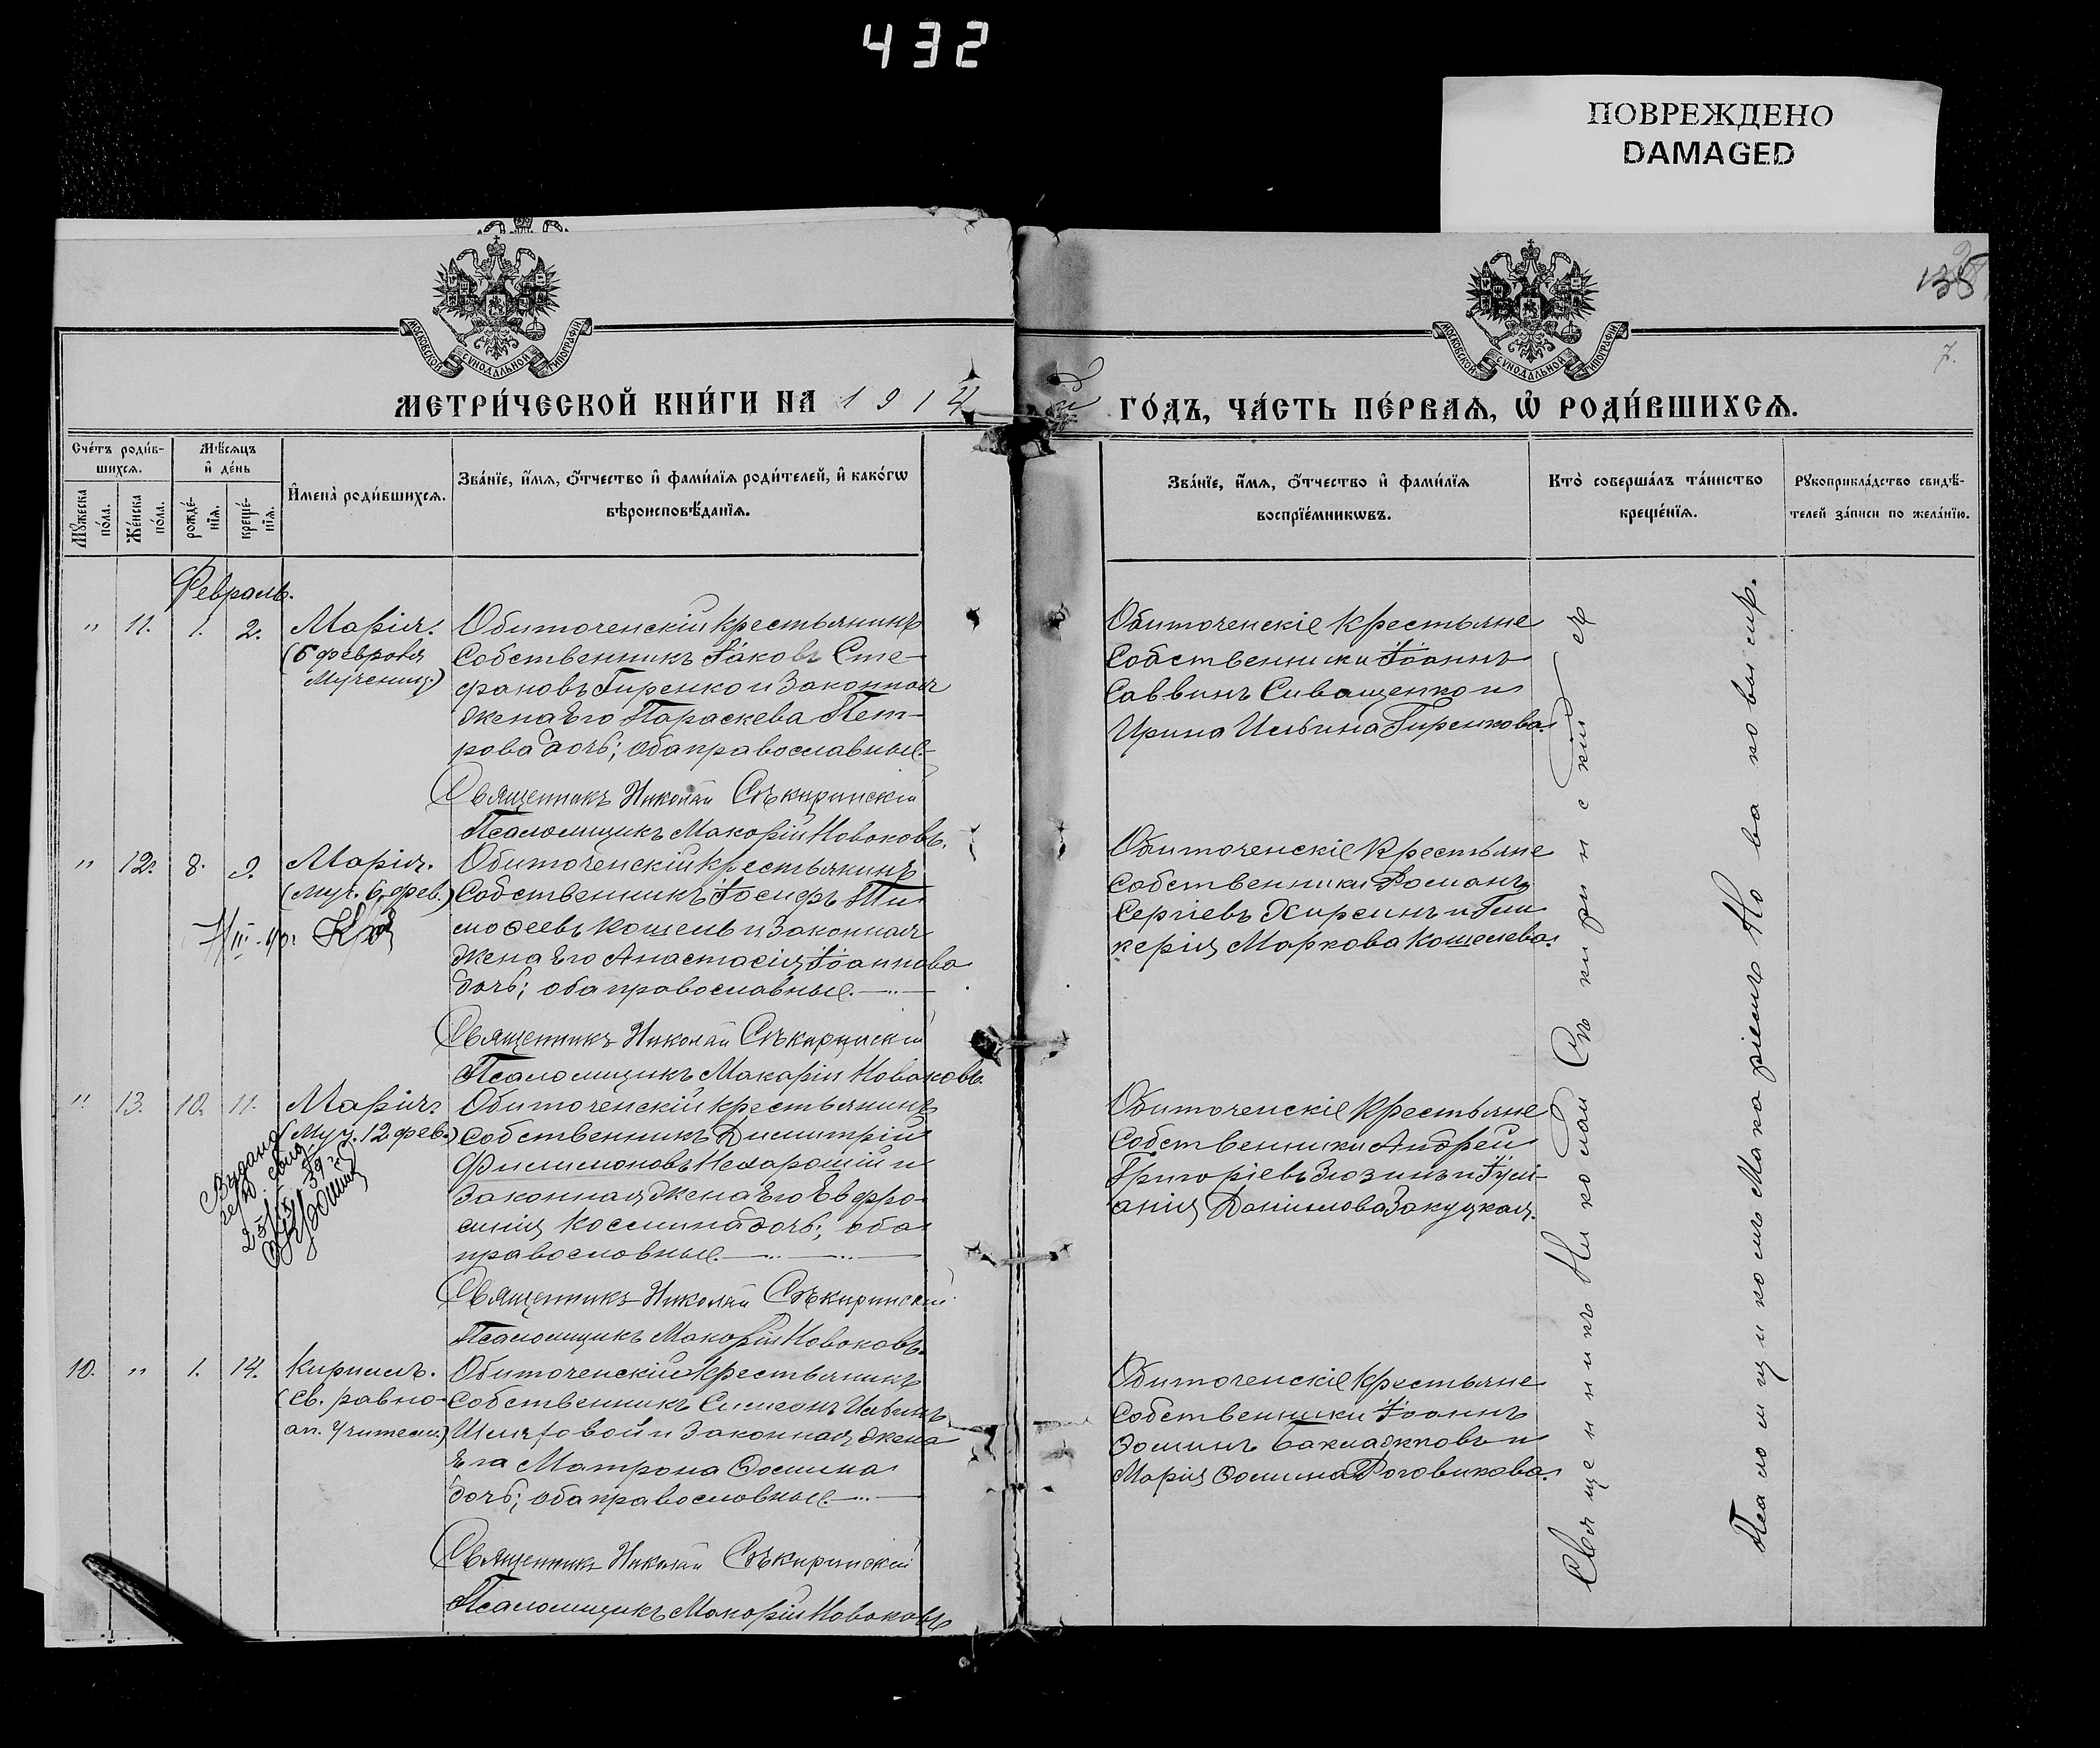 432
ПОВРЕЖДЕНО
DAMAGED
138
7.
МОСКОВСКОЙ СѴНОДАЛЬНОЙ ТИПОГРАФІИ
МОСКОВСКОЙ СѴНОДАЛЬНОЙ ТИПОГРАФІИ
МЕТРИ́ЧЕСКОЙ КНИ́ГИ НА 1914
й ГО́ДЪ, ЧА́СТЬ ПЕ́РВАѦ, Ѡ҆ РОДИ́ВШИХСѦ.
Сче́тъ роди́в-
шихсѧ.
Мѣ́сѧцъ
и҆ де́нь
Мꙋ́жеска по́ла.
Же́нска по́ла.
рожде́-
нїѧ.
креще́-
нїѧ.
И҆мена̀ роди́вшихсѧ.
Зва́нїе, и҆́мѧ, ѻ҆́тчество и҆ фами́лїѧ роди́телей, и҆ како́гѡ
вѣроисповѣ́данїѧ.
Зва́нїе, и҆́мѧ, ѻ҆́тчество и҆ фами́лїѧ
воспрїе́мникѡвъ.
Кто̀ соверша́лъ та́инство
креще́нїѧ.
Рꙋкоприкла́дство свидѣ́-
телей за́писи по жела́нїю.
Февраль.
" 11. 1. 2. Марія.
(6 февраля
Мученицы)
Обиточенскій крестьянинъ
собственникъ Іаковъ Сте-
фановъ Гиренко и законная
жена его Параскева Пет-
рова дочь; оба православные.
Священникъ Николай Сѣкиринскій
Псаломщикъ Макарій Новаковъ.
Обиточенскіе крестьяне
собственники Іоаннъ
Саввинъ Сиващенко и
Ирина Ильина Гиренкова.
" 12. 8. 9. Марія.
(муч. 6, фев.)
Обиточенскій крестьянинъ
собственникъ Іосифъ Ти
моѳеевъ Кошель и законная
жена его Анастасія Іоаннова
дочь; оба православные.
Священникъ Николай Сѣкиринскій
Псаломщикъ Макарій Новаковъ.
Обиточенскіе крестьяне
собственники Романъ
Сергіевъ Хирсинъ и Гли
керія Маркова Кошелева.
" 13. 10. 11. Марія
(Муч. 12 фев.)
Выдано
Обиточенскій крестьянинъ
собственникъ Димитрій
Филимоновъ Нехорошій и
законная жена его Евфро-
синія Космина дочь; оба
православные.
Священникъ Николай Сѣкиринскій
Псаломщикъ Макарій Новаковъ.
Обиточенскіе крестьяне
собственники Андрей
Григоріевъ Зюзинъ и Іулі-
анія Даніилова Закуцкая.
10. " 1. 14. Кириллъ.
(св. равно-
ап. учителя)
Обиточенскій крестьянинъ
собственникъ Симеонъ Ильинъ
и законная жена
его Матрона Ѳомина
дочь; оба православные.
Священникъ Николай Сѣкиринскій
Псаломщикъ Макарій Новаковъ
Обиточенскіе крестьяне
собственники Іоаннъ
Ѳоминъ Баклажковъ и
Марія Ѳомина Роговикова.
Священникъ Николай Сѣкиринскій съ
Псаломщикомъ Макаріемъ Новаковымъ.